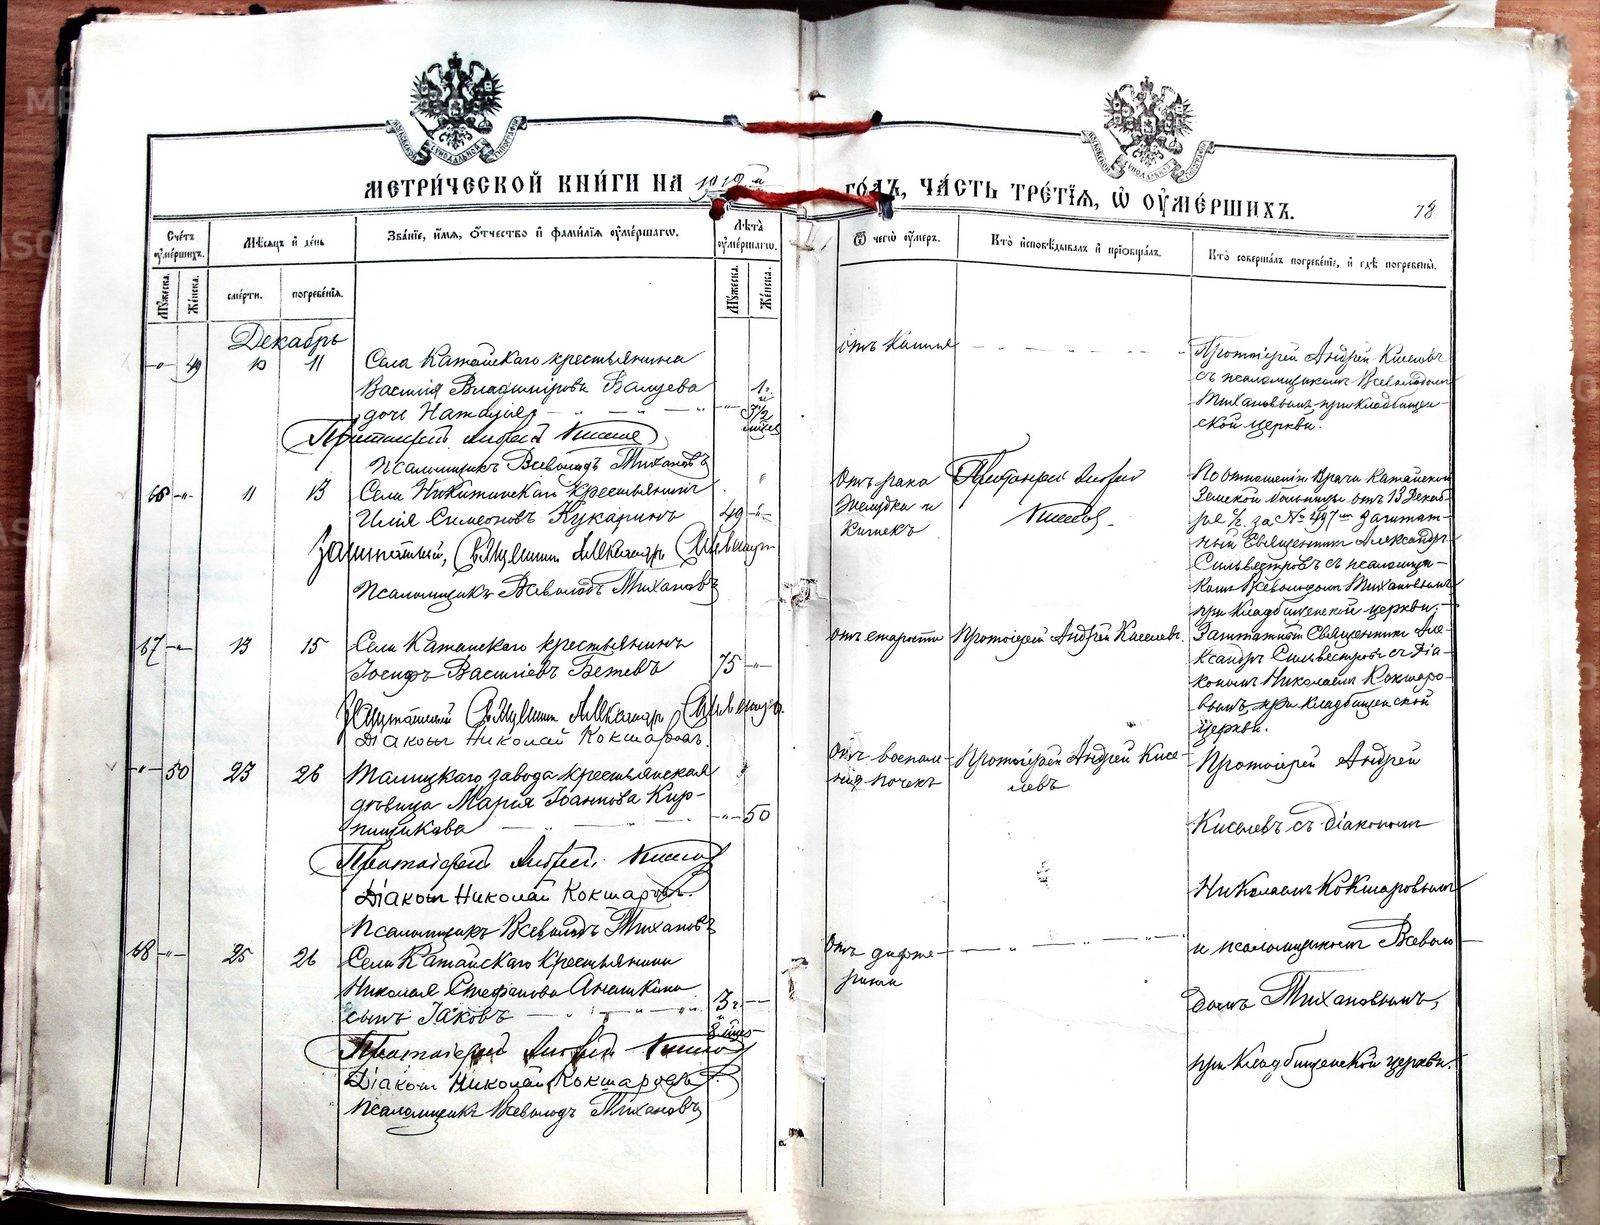 МЕТРИЧЕСКОЙ КНИГИ НА 1919й ГОДЪ, ЧАСТЬ ТРЕТІЯ, Ѿ ОУМЕРШИХЪ.
78
Счетъ оумершихъ.
Мѣсяцъ и день
Званіе, имя, отчество и фамилія оумершагѡ.
Лѣта оумершагѡ.
Ѿ чегѡ оумеръ.
Кто исповѣдывалъ и пріобщалъ.
Кто совершалъ погребеніе, и гдѣ погребены.
Мужеска.
Женска.
смерти.
погребенія.
Мужеска.
Женска.
Декабрь
-"- 49 10 11 Села Катайскаго крестьянина
Василія Владимірова
дочь Наталія - " - 1 г. и 3 1/2 мѣсяц
Протоіерей Андрей Киселевъ
Псаломщикъ Всеволодъ Тихановъ
отъ кашля
Протоіерей Андрей Киселевъ
съ псаломщикомъ Всеволодомъ
Тихановымъ при кладбищен-
ской церкви.
66 -"- 11 13 Села Никитинскаго крестьянинъ
Илія Симеоновъ Кукаринъ 49 -"-
Заштатный Священникъ Александръ Сильвестровъ
Псаломщикъ Всеволодъ Тихановъ
Отъ рака
желудка и
кишекъ
Протоіерей Андрей
Киселевъ.
По отношенію Врача Катайской
Земской больницы отъ 13 Декаб-
ря с/г. за № 497 Заштат-
ный Священникъ Александръ
Сильвестровъ съ псаломщи-
комъ Всеволодомъ Тихановымъ
при кладбищенской церкви.
67 -"- 13 15 Села Катайскаго крестьянинъ
Іосифъ Василіевъ Бетевъ 75 -"-
Заштатный Священникъ Александръ Сильвестровъ
Діаконъ Николай Кокшаровъ.
отъ старости
Протоіерей Андрей Киселевъ.
Заштатный Священникъ Але-
ксандръ Сильвестровъ съ діа-
кономъ Николаемъ Кокшаро-
вымъ, при кладбищенской
церкви.
-"- 50 23 26 Талицкаго завода крестьянская
дѣвица Марія Іоаннова Кир-
пищикова -"- 50
Протоіерей Андрей Киселевъ
Діаконъ Николай Кокшаровъ.
Псаломщикъ Всеволодъ Тихановъ
Отъ воспале-
нія почекъ
Протоіерей Андрей Кисе-
левъ
68 -"- 25 26 Села Катайскаго крестьянина
Николая Стефанова
сынъ Іаковъ - " - 3 г. и 8 мѣс
Протоіерей Андрей Киселевъ
Діаконъ Николай Кокшаровъ
Псаломщикъ Всеволодъ Тихановъ
Отъ дифте-
рита
Протоіерей Андрей
Киселевъ съ діакономъ
Николаемъ Кокшаровымъ
и псаломщикомъ Всеволо-
домъ Тихановымъ,
при кладбищенской церкви.